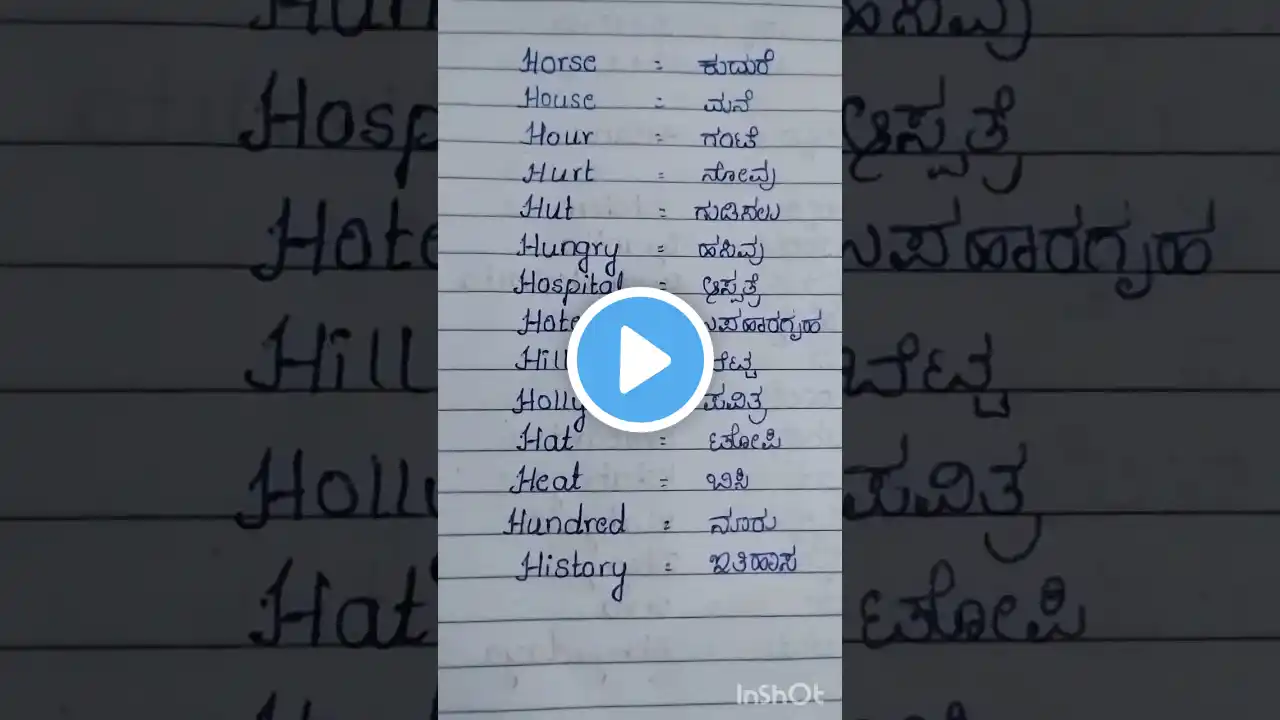 Horse = ಕುದುರೆ
House = ಮನೆ
Hour = ಗಂಟೆ
Hurt = ನೋವು
Hut = ಗುಡಿಸಲು
Hungry = ಹಸಿವು
Hospital = ಆಸ್ಪತ್ರೆ
ಉಪಹಾರಗೃಹ
Hill ಬೆಟ್ಟ
Holly ಪವಿತ್ರ
Hat = ಟೋಪಿ
Heat = ಬಿಸಿ
Hundred = ನೂರು
History = ಇತಿಹಾಸ
InShOt